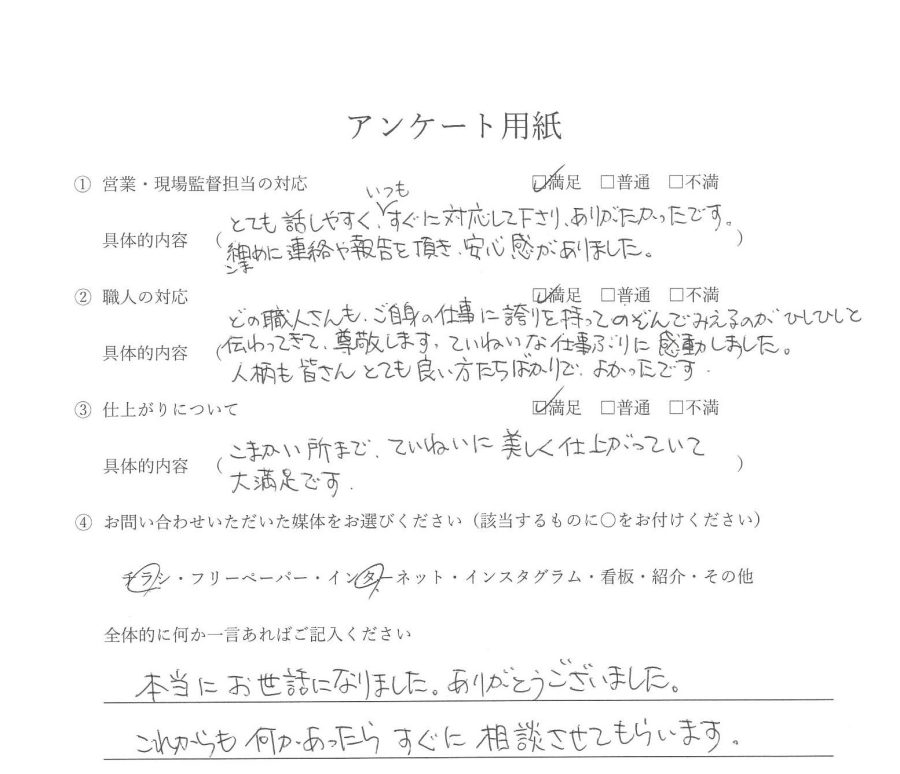 アンケート用紙
① 営業・現場監督担当の対応 ☑満足 □普通 □不満
いつも
とても話しやすく、すぐに対応して下さり、ありがたかったです。
具体的内容 ( )
細めに連絡や報告を頂き、安心感がありました。
こま
② 職人の対応 ☑満足 □普通 □不満
どの職人さんも、ご自身の仕事に誇りを持ってのぞんでみえるのがひしひしと
具体的内容 (伝わってきて、尊敬します。ていねいな仕事ぶりに感動しました。
人柄も皆さんとても良い方たちばかりで、よかったです.
③ 仕上がりについて ☑満足 □普通 □不満
こまかい所まで、ていねいに美しく仕上がっていて
具体的内容 ( )
大満足です.
④ お問い合わせいただいた媒体をお選びください（該当するものに○をお付けください）
チラシ・フリーペーパー・インターネット・インスタグラム・看板・紹介・その他
全体的に何か一言あればご記入ください
本当にお世話になりました。ありがとうございました。
これからも何かあったらすぐに相談させてもらいます。